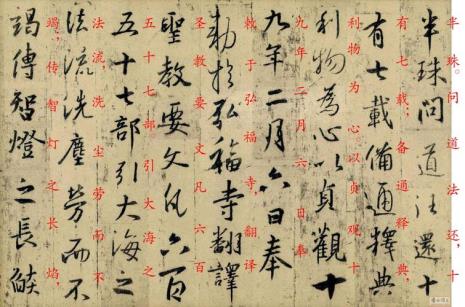 半珠。问道法还,十
半珠問道往還十
有七载,备通释典,
有七載備通釋典
利物为心。以贞观十
利物為心以貞觀十
九年二月六日奉
九年二月六日奉
敕于弘福寺翻译
勅於弘福寺翻譯
圣教要文凡六百
聖教要文凡六百
五十七部引大海之
五十七部引大海之
法流,洗尘劳而不
法流洗塵勞而不
竭,传智灯之长焰,
竭傳智燈之長燄